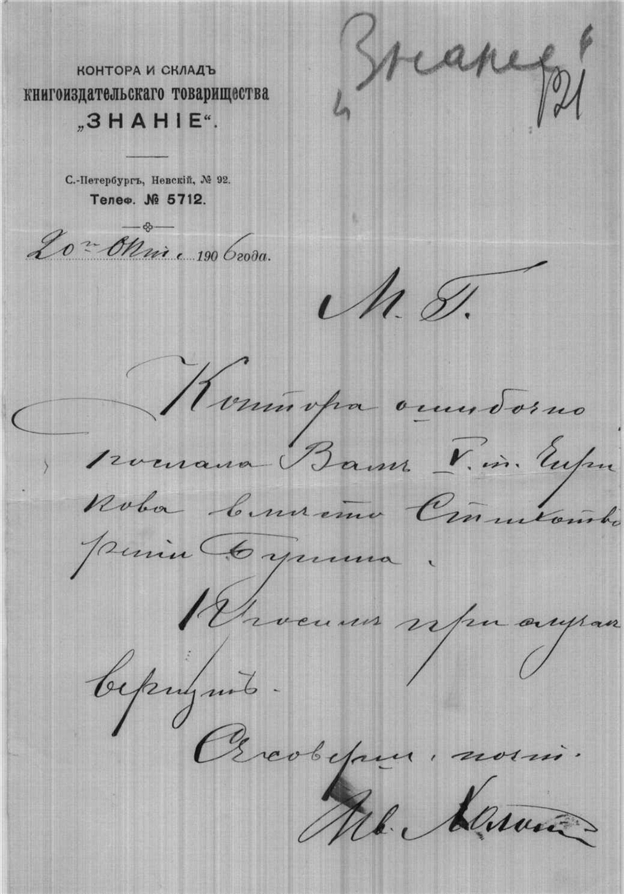 „Знание“
КОНТОРА И СКЛАДЪ
КНИГОИЗДАТЕЛЬСКАГО ТОВАРИЩЕСТВА
„ЗНАНІЕ“.
С.-Петербургъ, Невскій, № 92.
Телеф. № 5712.
20го Окт. 1906 года.
М. Г.
Контора ошибочно
послала Вамъ V. т. Чири
кова вмѣсто Стихотво
реній Бунина.
Просимъ при случаѣ
вернуть.
Съ соверш. почт.
Ив.